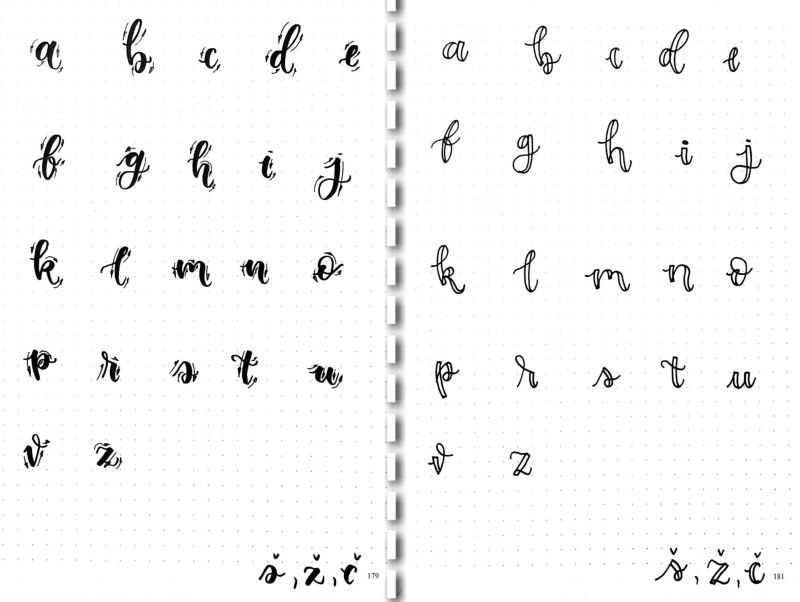 a b c d e
f g h i j
k l m n o
p r s t u
v z
š, ž, č 179
a b c d e
f g h i j
k l m n o
p r s t u
v z
š, ž, č 181